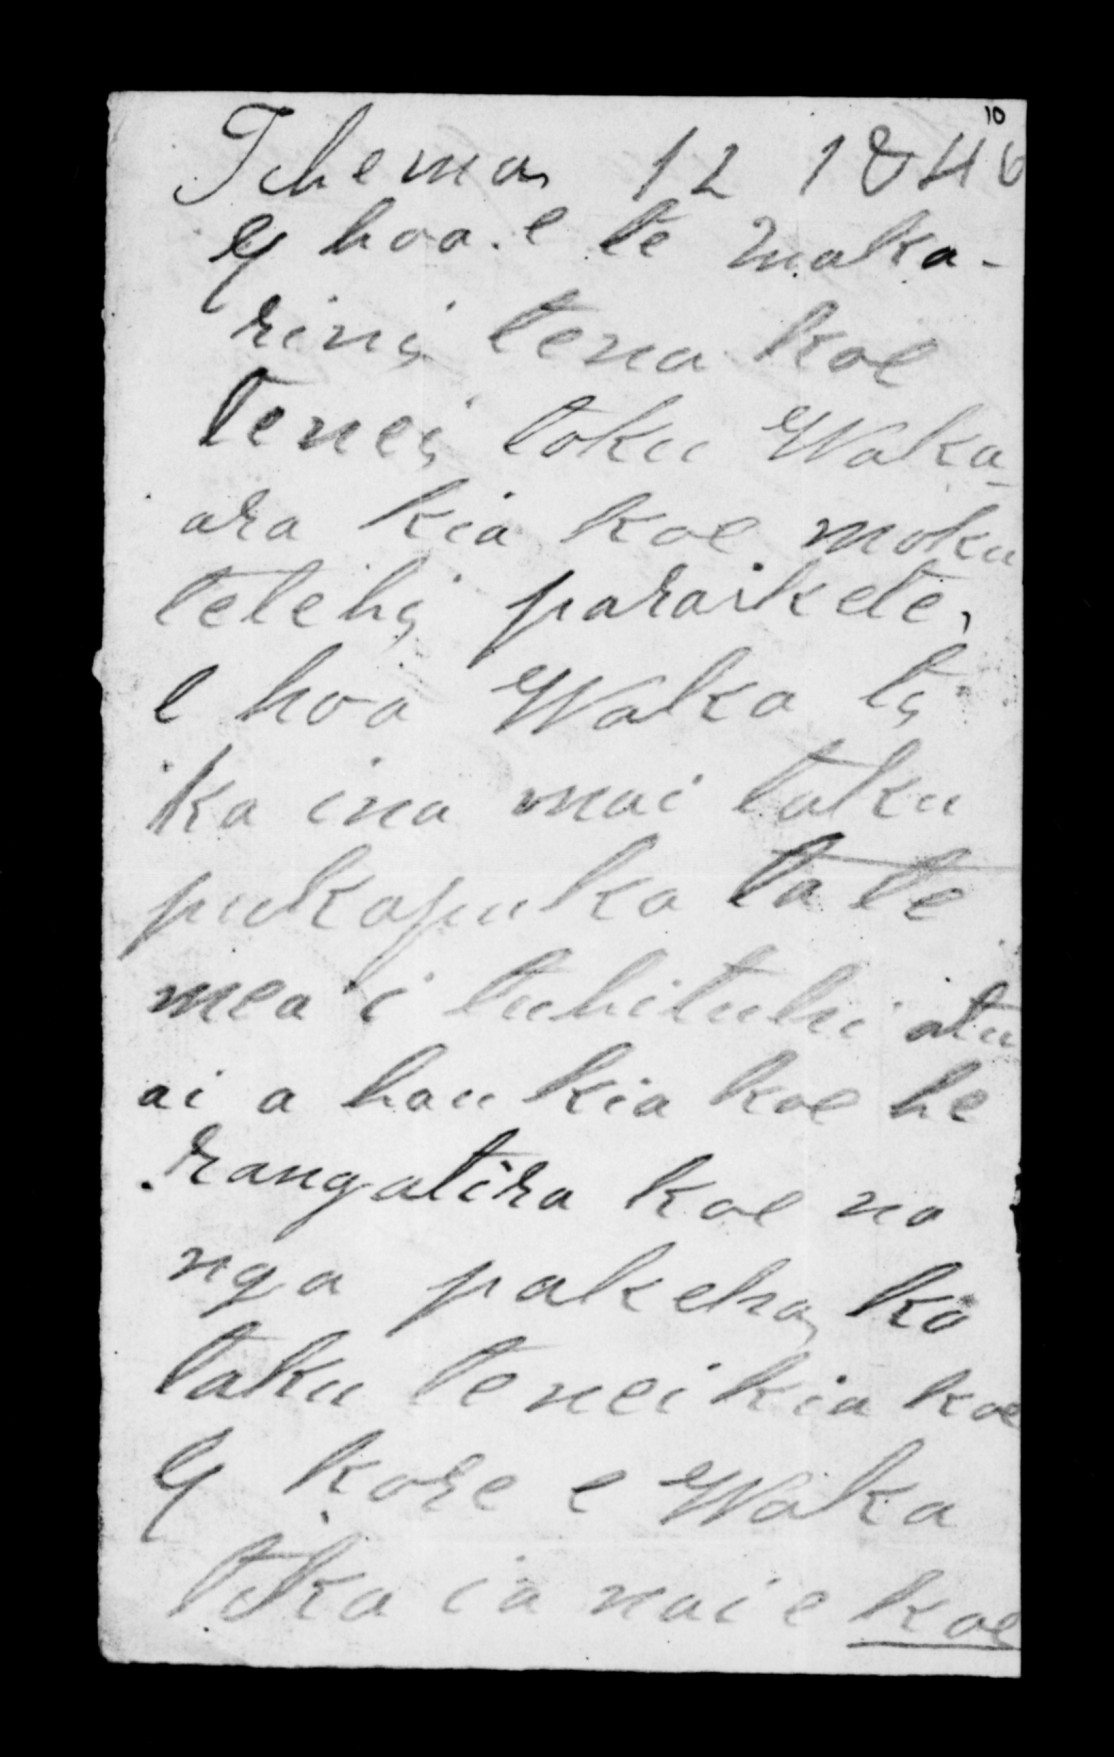 10
Tihema 12 1846
E hoa. e te Maka-
rini tena koe
tenei toku Waka
ara kia koe moku
tetehi paraikete,
e hoa Waka ti
ka ina mai taku
pukapuka ta te
mea i tuhituhi atu
ai a hau kia koe he
rangatira koe no
nga pakeha, ko
taku tenei kia koe
E kore e Waka
tika ia mai e koe